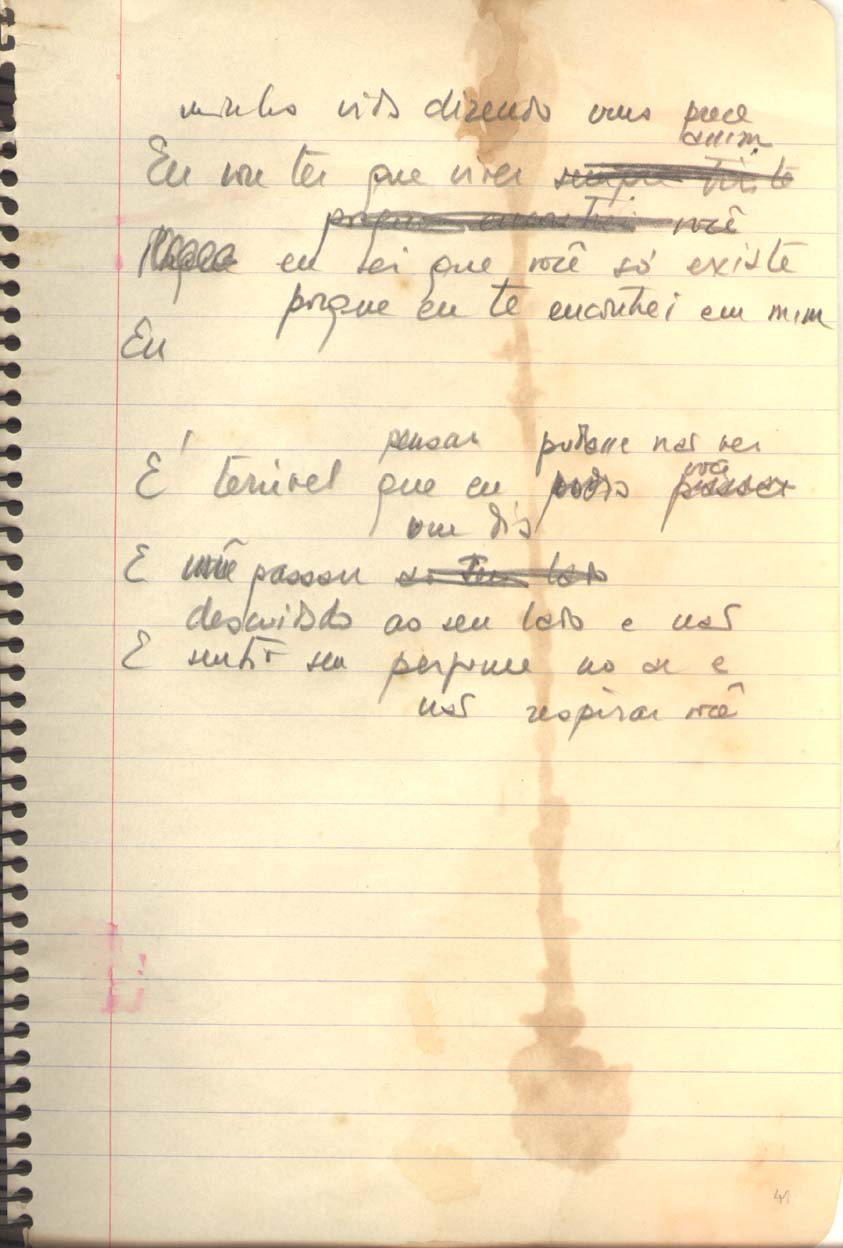 minha vida dizendo uma prece
assim
Eu vou ter que viver sempre triste
porque encontrei você
eu sei que você só existe
porque eu te encontrei em mim
Eu
pensar pudesse não ver
É terrível que eu podia você passar
um dia
E você passou ao seu lado
descuidado ao seu lado e não
E sentir seu perfume no ar e
não respirar você
41